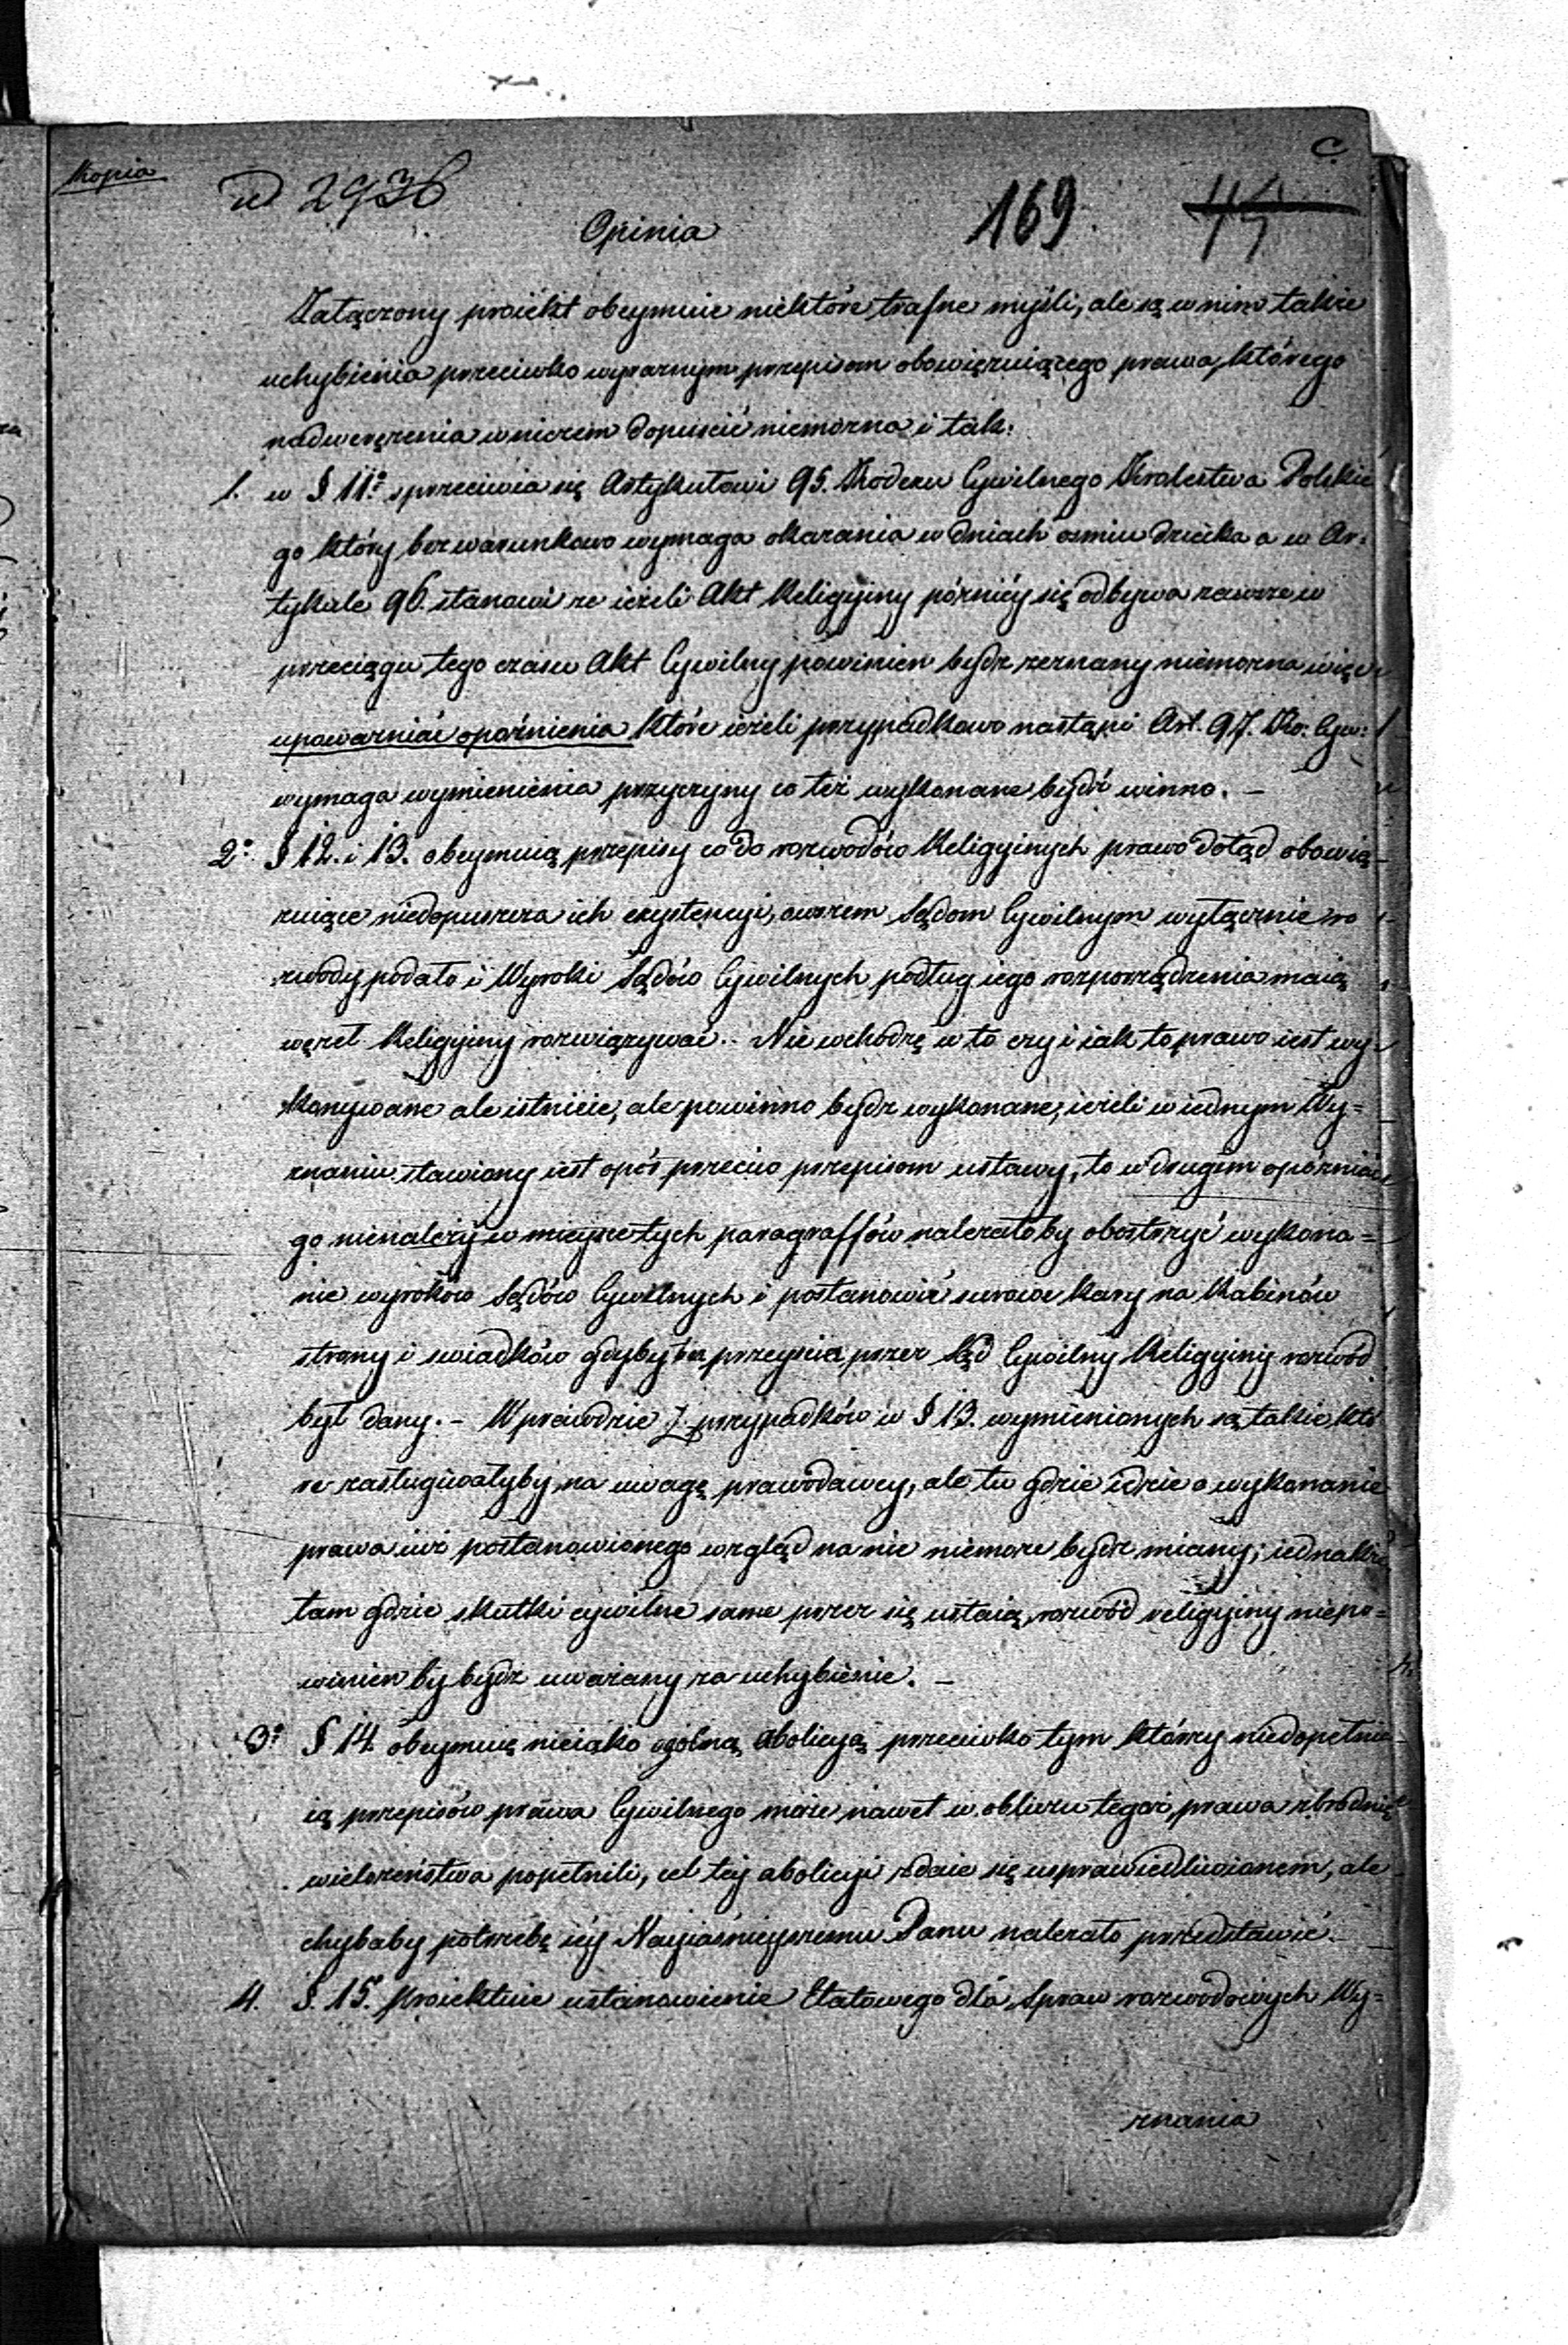 C.
Kopia
ad 2936
169
44
Opinia
Załączony proiekt obeymuie niektóre trafne myśli, ale są w nim takie
uchybienia przeciwko wyraznym przepisom obowięzuiącego prawa, którego
nadweręzenia w niczem dopuścić niemozna i tak:
1. w § 11º sprzeciwia się Artykułowi 95. Kodexu Cywilnego Krolestwa Polskie
go który bezwarunkowo wymaga okazania w dniach osmiu dziecka a w Ar=
tykule 96. stanowi ze ieżeli Akt Religyiny późniéy się odbywa zawsze w
przeciągu tego czasu Akt Cywilny powinien bydz zeznany niemozna więc
upowazniać opoźnienia które ieżeli przypadkowo nastąpi Art. 97. Ko: Cyw:
wymaga wymienienia przyczyny co też wykonane bydź winno. –
2º § 12. i 13. obeymuią przepisy co do rozwodów Religyinych prawo dotąd obowią=
zuiące niedopuszcza ich exystencyi, owszem Sądom Cywilnym wyłącznie ro
zwody podało i Wyroki Sądów Cywilnych podług iego rozporządzenia maią
węzeł Religyiny rozwiązywać. – Nie wchodzę w to czy i iak to prawo iest wy=
konywane ale istnieie, ale powinno bydz wykonane, ieżeli w iednym Wy=
znaniu stawiony iest opór przeciw przepisom ustawy, to w drugim opóźniać
go nienależy w mieysce tych paragraffów nalezałoby obostrzyć wykona=
nie wyroków Sądów Cywilnych i postanowić surowe kary na Rabinów
strony i swiadków gdyby bez przeyscia przez Sąd Cywilny Religyiny rozwód
był dany. – Wprawdzie z przypadków w § 13. wymienionych są takie któ
re zasługiwałyby na uwagę prawodawcy, ale tu gdzie idzie o wykonanie
prawa iuż postanowionego wzgląd na nie niemoze bydz miany; iednakże
tam gdzie skutki cywilne same przez się ustaią, rozwód religyiny niepo=
winien by bydz uważany za uchybienie. –
3º § 14. obeymuię nieiako ogolną abolicyą przeciwko tym którzy niedopełnia
ią przepisów prawa Cywilnego może nawet w obliczu tegoż prawa zbrodnię
wielozeństwa popełnili, cel téy abolicyi zdaie się usprawiedliwionem, ale
chybaby potrzebę iéy Nayiaśnieyszemu Panu nalezało przedstawić. –
4. § 15. proiektuie ustanowienie Etatowego dla Spraw rozwodowych Wy=
znania